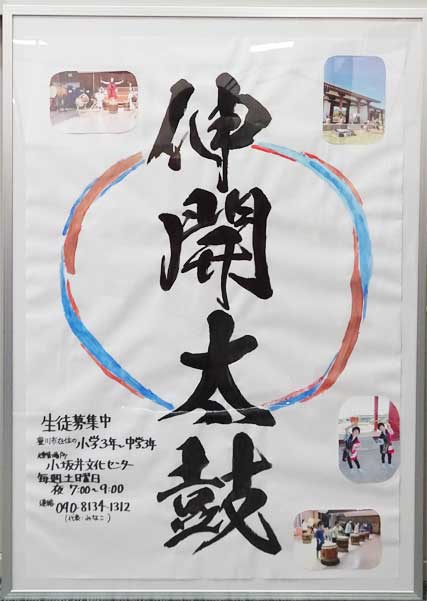 伸開太鼓
生徒募集中
豊川市在住の小学3年~中学3年
練習場所
小坂井文化センター
毎週土曜日
夜 7:00~9:00
連絡 090-8134-1312
(代表 みなこ)